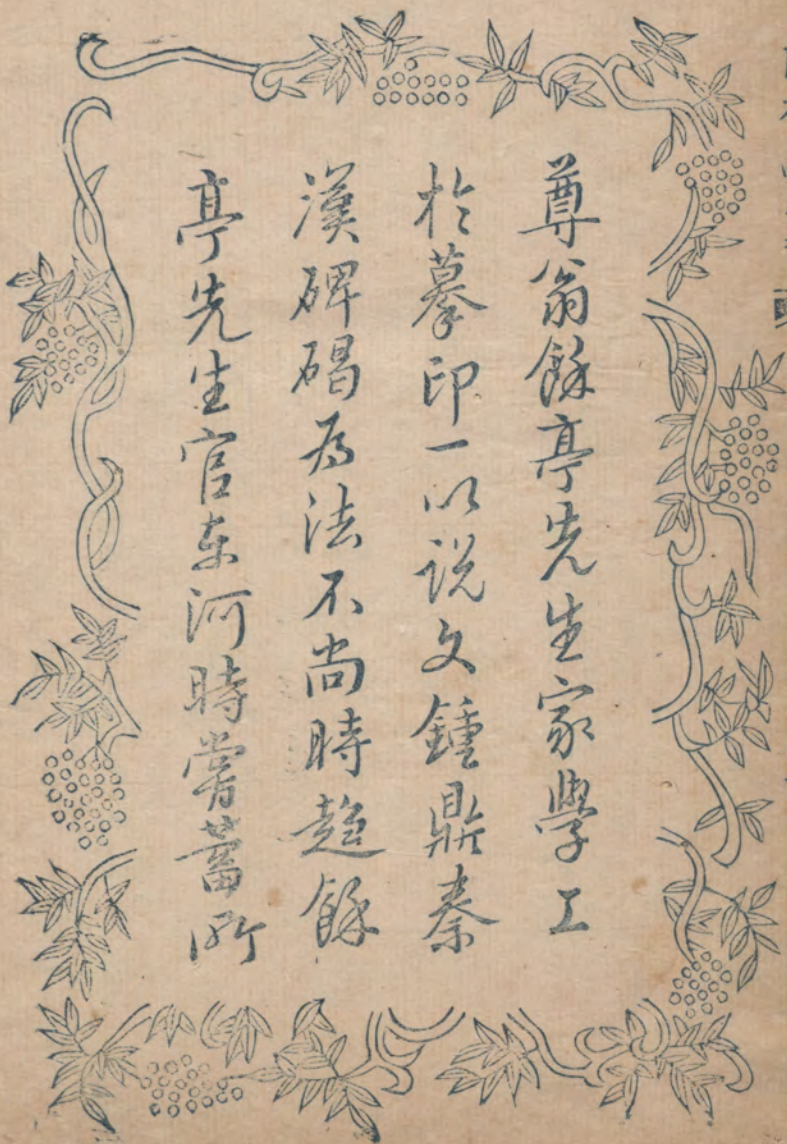 尊翁餘亭先生家學工
於摹印一以說文鍾鼎秦
漢碑碣為法不尚時趨餘
亭先生官东河時嘗蓄所